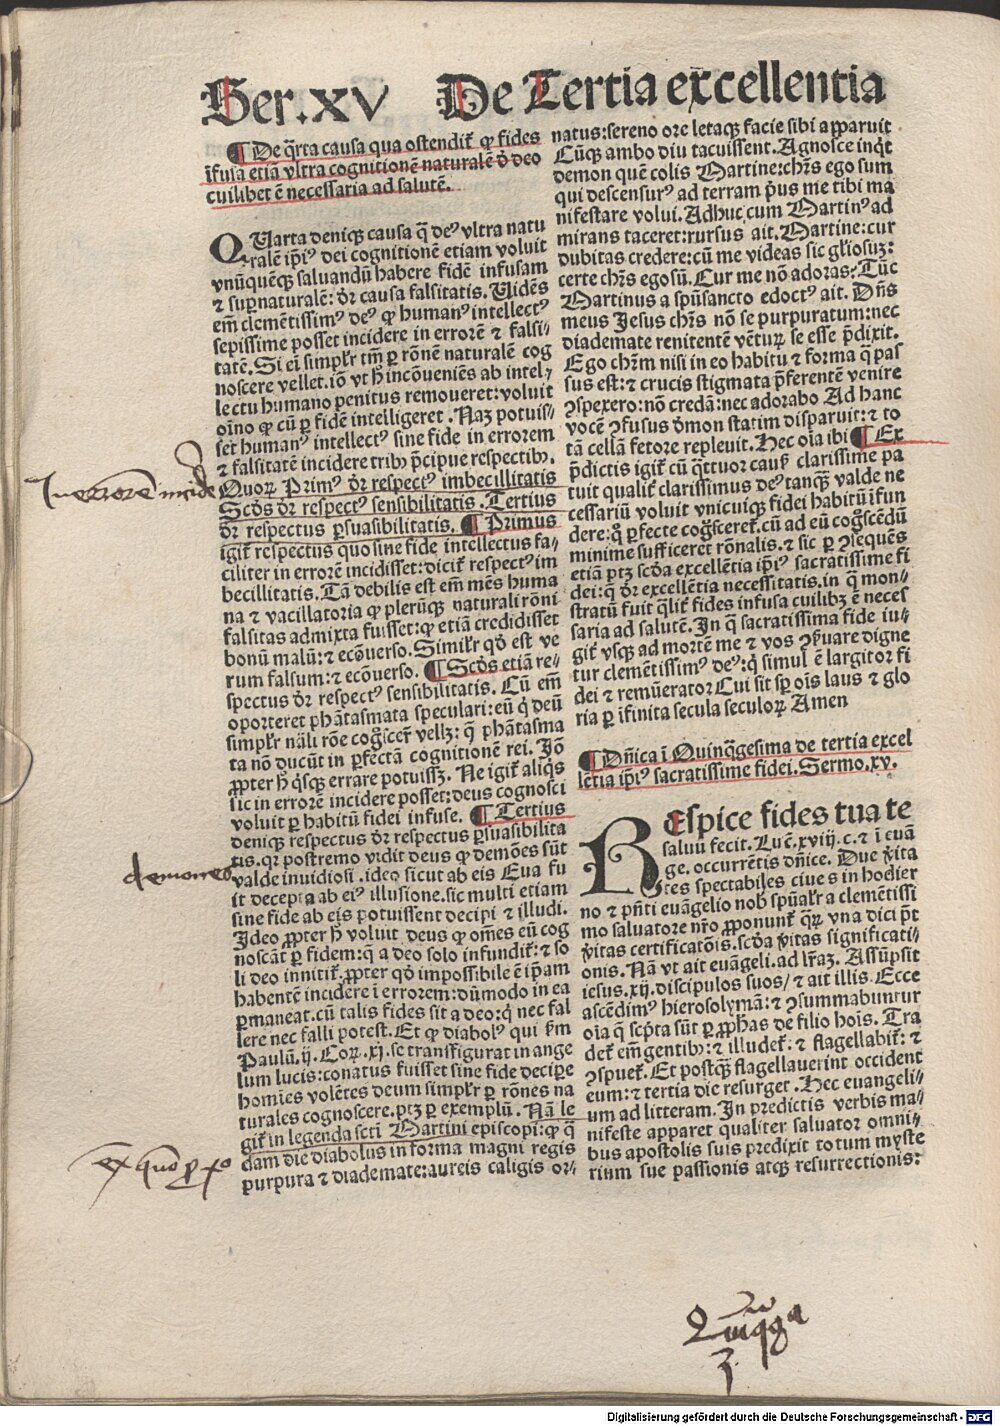 Ser.XV De Tertia excellentia
¶ De q̄rta causa qua ostendit̄ ꝙ fides
īfusa etiā vltra cognitionē naturalē ō deo
cuilibet ē necessaria ad salutē.
QUarta deniqꝫ causa q̄ deꝰ vltra natu
ralē ip̄iꝰ dei cognitionē etiam voluit
vnūquēqꝫ saluandū habere fidē infusam
⁊ sup̄naturalē: dr̄ causa falsitatis. Uidēs
em̄ clemētissimꝰ deꝰ ꝙ humanꝰ intellectꝰ
sepissime posset incidere in errorē ⁊ falsi⸗
tatē. Si ei simpl̓r tm̄ ꝑ rōnē naturalē cog
noscere vellet. iō vt h̄ incōueniēs ab intel⸗
lectu humano penitus remoueret: voluit
oīno ꝙ cū ꝑ fidē intelligeret. Naꝫ potuis⸗
set humanꝰ intellectꝰ sine fide in errorem
⁊ falsitatē incidere tribꝰ p̄cipue respectibꝰ.
Quoꝝ Primꝰ dr̄ respectꝰ imbecillitatis
Scds̄ dr̄ respectꝰ sensibilitatis. Tertius
dr̄ respectus ꝑsuasibilitatis. ¶ Primus
igit̄ respectus quo sine fide intellectus fa⸗
ciliter in errorē incidisset: dicit̄ respectꝰ im
becillitatis. Tā debilis est em̄ mēs huma
na ⁊ vacillatoria ꝙ plerūqꝫ naturali rōni
falsitas admixta fuisset: ꝙ etiā credidisset
bonū malū: ⁊ ecōuerso. Simil̓r qd̓ est ve
rum falsum: ⁊ ecōuerso. ¶ Scds̄ etiā re⸗
spectus dr̄ respectꝰ sensibilitatis. Cū em̄
oporteret phātasmata speculari: eū q̓ deū
simpl̓r nāli rōe cog̓scer̄ vellꝫ: q̄ phātasma
ta nō ducūt in ꝑfectā cognitionē rei. Iō
ꝓpter h̄ q̓sqꝫ errare potuissꝫ. Ne igit̄ aliq̓s
sic in errorē incidere posset: deus cognosci
voluit ꝑ habitū fidei infuse. ¶ Tertius
deniqꝫ respectus dr̄ respectus ꝑsuasibilita
tis. qr̄ postremo vidit deus ꝙ demōes sūt
valde inuidiosi. ideo sicut ab eis Eua fu
it decepta ab eiꝰ illusione. sic multi etiam
sine fide ab eis potuissent decipi ⁊ illudi.
Ideo ꝓpter h̄ voluit deus ꝙ om̄es eū cog
noscāt ꝑ fidem: q̄ a deo solo infundit̄: ⁊ so
li deo innitit̄. ꝓpter qd̓ impossibile ē ip̄am
habentē incidere ī errorem: dūmodo in ea
ꝑmaneat. cū talis fides sit a deo: q̓ nec fal
lere nec falli potest. Et ꝙ diabolꝰ qui km̄
Paulū. ij. Coꝝ. xj. se transfigurat in ange
lum lucis: conatus fuisset sine fide decipe
homīes volētes deum simpl̓r ꝑ rōnes na
turales cognoscere. ptꝫ ꝑ exemplū. Nā le
git̄ in legenda scti Martini episcopi: ꝙ q̄
dam die diabolus in forma magni regis
purpura ⁊ diademate: aureis caligis or⸗
natus: sereno ore letaqꝫ facie sibi apparuit
Cūqꝫ ambo diu tacuissent. Agnosce inq̓t
demon quē colis Martine: chr̄s ego sum
qui descensurꝰ ad terram p̓us me tibi ma
nifestare volui. Adhuc cum Martinꝰ ad
mirans taceret: rursus ait. Martine: cur
dubitas credere: cū me videas sic gl̓iosuꝫ:
certe chr̄s ego sū. Cur me nō adoras? Tūc
Martinus a spūsancto edoctꝰ ait. Dn̄s
meus Jesus chr̄s nō se purpuratum: nec
diademate renitentē vētuꝝ se esse p̄dixit.
Ego chr̄m nisi in eo habitu ⁊ forma q̄ pas
sus est: ⁊ crucis stigmata p̄ferentē venire
ꝯspexero: nō credā: nec adorabo Ad hanc
vocē ꝯfusus dmon statim disparuit: ⁊ to
tā cellā fetore repleuit. Hec oīa ibi ¶ Ex
p̄dictis igit̄ cū q̄ttuor caus̄ clarissime pa
tuit qualit̄ clarissimus deꝰ tanqꝫ valde ne
cessariū voluit vnicuiqꝫ fidei habitū ifun
dere: q̓ ꝑfecte cog̓sceret̄. cū ad eū cog̓scēdū
minime sufficeret rōnalis. ⁊ sic ꝑ ꝯsequēs
etiā ptꝫ scd̓a excellētia ip̄iꝰ sacratissime fi
dei: q̄ dr̄ excellētia necessitatis. in q̄ mon⸗
stratū fuit q̄lit̄ fides infusa cuilibꝫ ē neces
saria ad salutē. In q̄ sacratissima fide iu⸗
git̄ vsqꝫ ad mortē me ⁊ vos ꝯseruare digne
tur clemētissimꝰ deꝰ: q̓ simul ē largitor fi
dei ⁊ remūerator Cui sit sp̄ oīs laus ⁊ glo
ria ꝑ īfinita secula seculoꝝ Amen
¶ Dn̄ica ī Quinq̄gesima de tertia excel
lētia ip̄iꝰ sacratissime fidei. Sermo. xv.
REspice fides tua te
saluū fecit. Luc̄. xviij. c. ⁊ ī euā
ge. occurrētis dn̄ice. Due v̓ita
tes spectabiles ciues in hodier
no ⁊ pn̄ti euāgelio nob̄ spūal̓r a clemētissi
mo saluatore nr̄o ꝓponunt̄ q̄ꝝ vna dici p̄t
v̓itas certificatōis. scd̓a v̓itas significati⸗
onis. Nā vt ait euāgeli. ad lr̄aꝫ. Assūpsit
iesus. xij. discipulos suos/ ⁊ ait illis. Ecce
ascēdimꝰ hierosolymā: ⁊ ꝯsummabuntur
oīa q̄ scp̄ta sūt ꝑ ꝓphas de filio hoīs. Tra
det̄ em̄ gentibꝰ: ⁊ illudet̄: ⁊ flagellabit̄: ⁊
ꝯspuet̄. Et postqꝫ flagellauerint occident
eum: ⁊ tertia die resurget. Hec euangeli⸗
um ad litteram. In predictis verbis ma⸗
nifeste apparet qualiter saluator omni⸗
bus apostolis suis predixit totum myste
rium sue passionis atqꝫ resurrectionis:
In errorē incide
demones
Digitalisierung gefördert durch die Deutsche Forschungsgemeinschaft - DFG